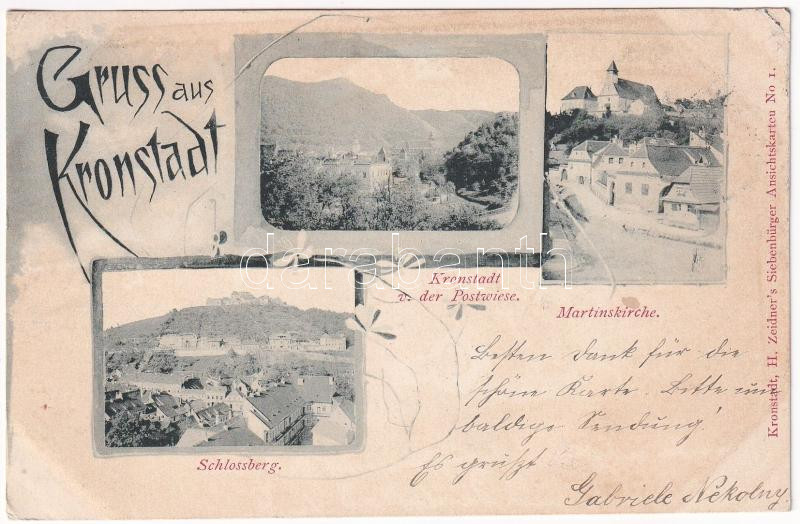 Gruss aus
Kronstadt
Kronstadt
v. der Postwiese.
Martinskirche.
Schlossberg.
Besten Dank für die
schöne Karte. Bitte um
baldige Sendung!
Es grüszt
Gabriele Nekolny.
Kronstadt, H. Zeidner's Siebenbürger Ansichtskarten No 1.
darabanth